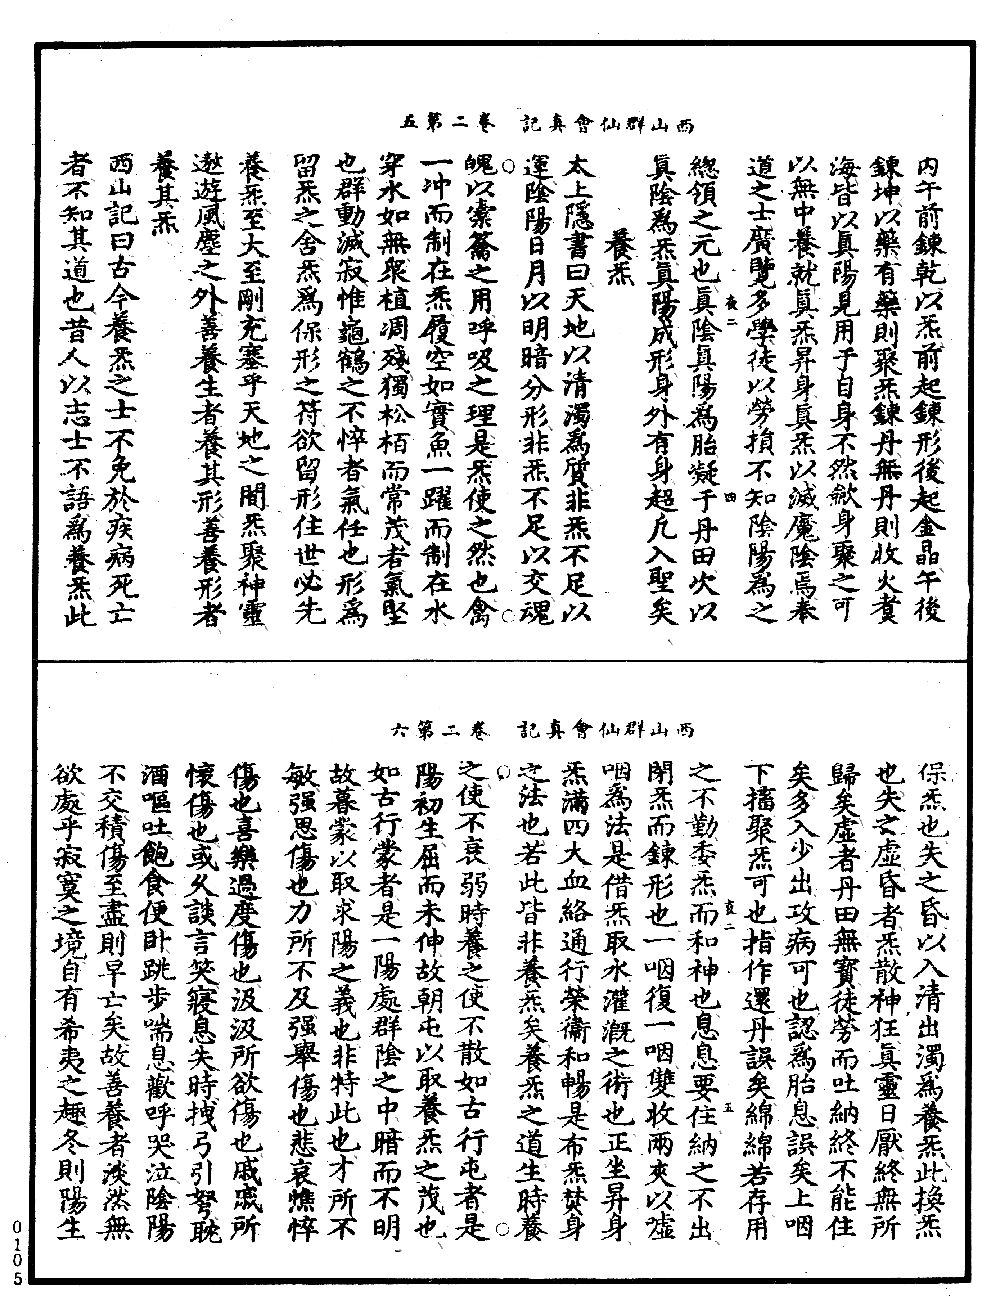 西山群仙會真記　卷二第五
内午前鍊乾以炁前起鍊形後起金晶午後
鍊坤以藥有藥則聚炁鍊丹無丹則收火煑
海皆以真陽見用于自身不然歛身聚之可
以無中養就真炁昇身真炁以滅魔陰焉奉
道之士廣覽多學徒以勞損不知陰陽為之
總領之元也真陰真陽為胎凝于丹田火以
真陰為炁真陽成形身外有身超凡入聖矣
養炁
太上隱書曰天地以清濁為質非炁不足以
運陰陽日月以明暗分形非炁不足以交魂
魄以橐籥之用呼吸之理是炁使之然也禽
一冲而制在炁履空如實魚一躍而制在水
穿水如無眾植凋殘獨松栢而常茂者氣堅
也群動滅寂惟龜鶴之不悴者氣任也形為
留炁之舍炁為保形之符欲留形住世必先
養炁至大至剛充塞乎天地之間炁聚神靈
遨遊風塵之外善養生者養其形善養形者
養其炁
西山記曰古今養炁之士不免於疾病死亡
者不知其道也昔人以志士不語為養炁此
西山群仙會真記　卷二第六
保炁也失之昏以入清出濁為養炁此換炁
也失之虛昏者炁散神狂真靈日厭終無所
歸矣虛者丹田無寶徒勞而吐納終不能住
矣多入少出攻病可也認為胎息誤矣上咽
下搐聚炁可也指作還丹誤矣綿綿若存用
之不勤委炁而和神也息息要住納之不出
閉炁而鍊形也一咽復一咽雙收兩夾以噓
咽為法是借炁取水灌溉之術也正坐昇身
炁滿四大血絡通行榮衛和暢是布炁焚身
之法也若此皆非養炁矣養炁之道生時養
之使不衰弱時養之使不散如古行屯者是
陽初生屈而未伸故朝屯以取養炁之茂也
如古行蒙者是一陽處群陰之中暗而不明
故暮蒙以取求陽之義也非特此也才所不
敏强思傷也力所不及强舉傷也悲哀憔悴
傷也喜樂過度傷也汲汲所欲傷也戚戚所
懷傷也或久談言笑寢息失時拽弓引弩耽
酒嘔吐飽食便卧跳步喘息歡呼哭泣陰陽
不交積傷至盡則早亡矣故善養者淡然無
欲處乎寂寞之境自有希夷之趣冬則陽生
0105